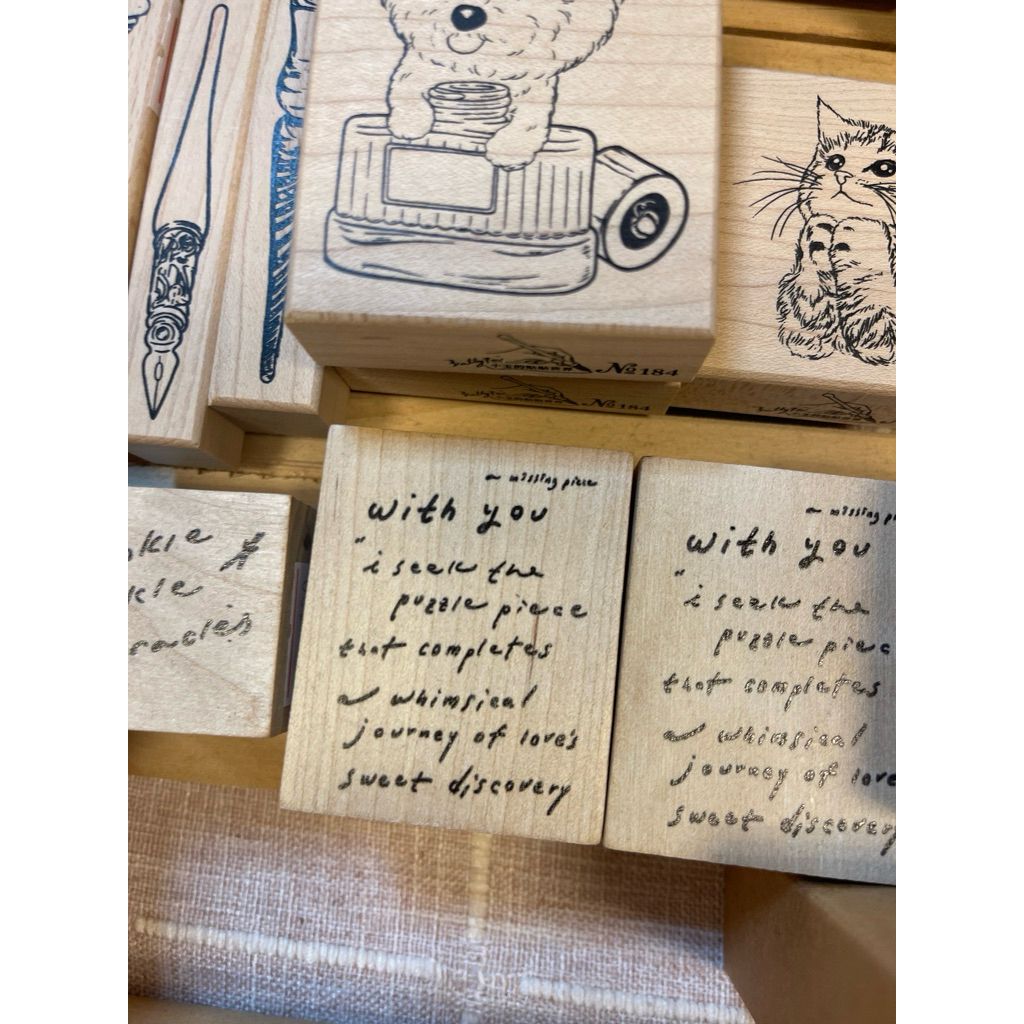 No 184
No 184
a missing piece
with you
"i seek the
puzzle piece
that completes
a whimsical
journey of love's
sweet discovery
a missing
with you
"i seek the
puzzle piec
that completes
a whimsical
journey of love
sweet discovery